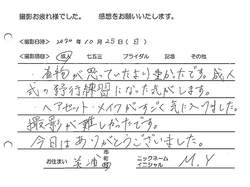 撮影お疲れ様でした。 感想をお願いいたします。
撮影日時》 2020年10月25日(日)
撮影項目》 成人 七五三 ブライダル 記念 その他
・着物が思っていたより重かったです。成人
式の予行練習になった気がします。
・ヘアセット・メイクがすごく気に入りました。
撮影が楽しかったです。
今日はありがとうございました。
お住まい 美浦 市 町 村
ニックネーム イニシャル M.Y